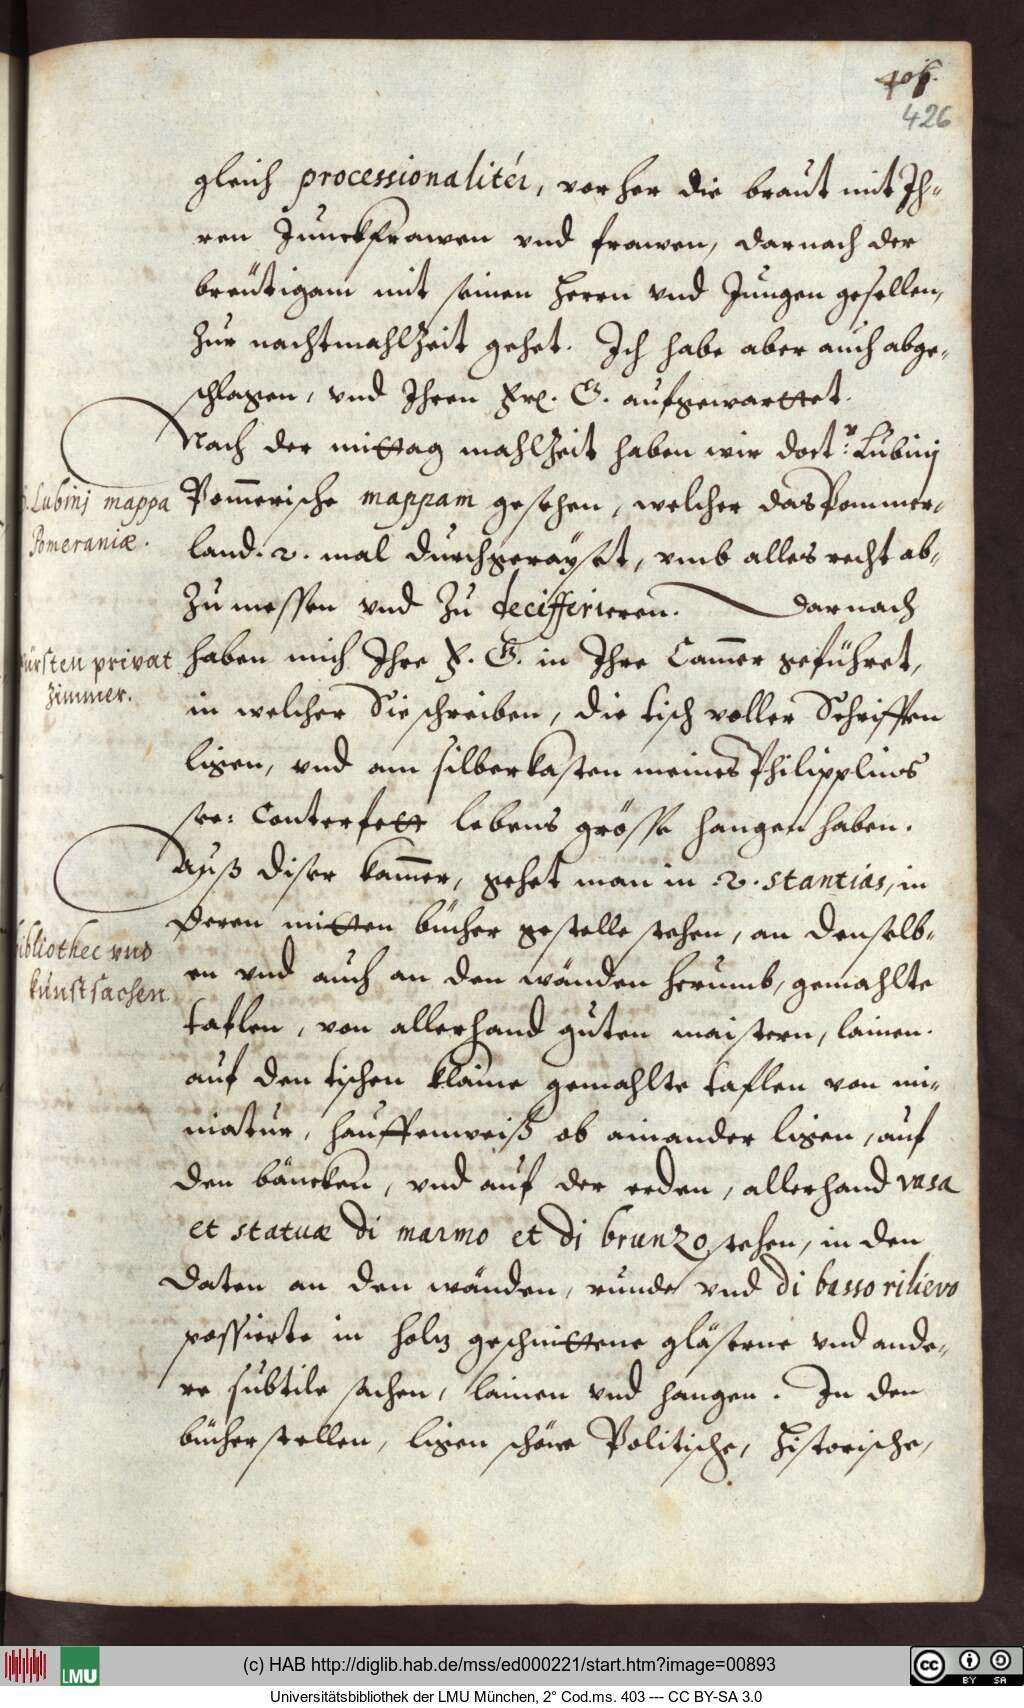 406.
426
gleich processionalitèr, vorher die braut mit Ih-
ren Junckfrawen vnd frawen, darnach der
breütigam mit seinen herrn vnd Jungen gesellen,
zur nachtmahlzeit gehet. Ich habe aber auch abge-
schlagen, vnd Ihren Frl. G. aufgewarttet.
Nach der mittag mahlzeit haben wir doct.r Lubinj
D. Lubinj mappa
Pomeraniæ.
Pom̄erische mappam gesehen, welcher das Pommer-
land. 2. mal durchgerayset, vmb alles recht ab-
zumessen vnd zu decifferieren. Darnach
fürsten privat
zimmer.
haben mich Ihre F. G. in Ihre Cam̄er geführet,
in welcher Sie schreiben, die tisch voller Schrifften
ligen, vnd am silberkasten meines Philipplins
see: Conterfett lebens grösse hangen haben.
Auß diser kam̄er, gehet man in 2. stantias, in
bibliothec vnd
kunstsachen.
deren mitten bücher gestelle stehen, an denselb-
en vnd auch an den wänden herumb, gemahlte
taflen, von allerhand guten maistern, lainen.
auf den tischen klaine gemahlte taflen von mi-
niatur, hauffenweiß ob ainander ligen, auf
den bäncken, vnd auf der erden, allerhand vasa
et statuæ di marmo et di brunzo stehen, in den
Daten an den wänden, runde vnd di basso rilievo
possierte in holtz geschnittene gläserne vnd ande-
re subtile sachen, lainen vnd hangen. In den
bücherstellen, ligen schöne Politische, Historische,
LMU
(c) HAB http://diglib.hab.de/mss/ed000221/start.htm?image=00893
cc BY SA
Universitätsbibliothek der LMU München, 2° Cod.ms. 403 --- CC BY-SA 3.0